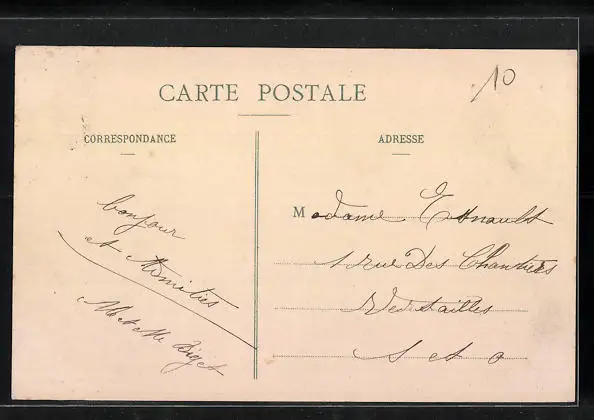 CARTE POSTALE
10
CORRESPONDANCE
ADRESSE
bonjour
et Amitiés
M et Me
Madame Esnault
1 rue Des Chantiers
Versailles
S et O